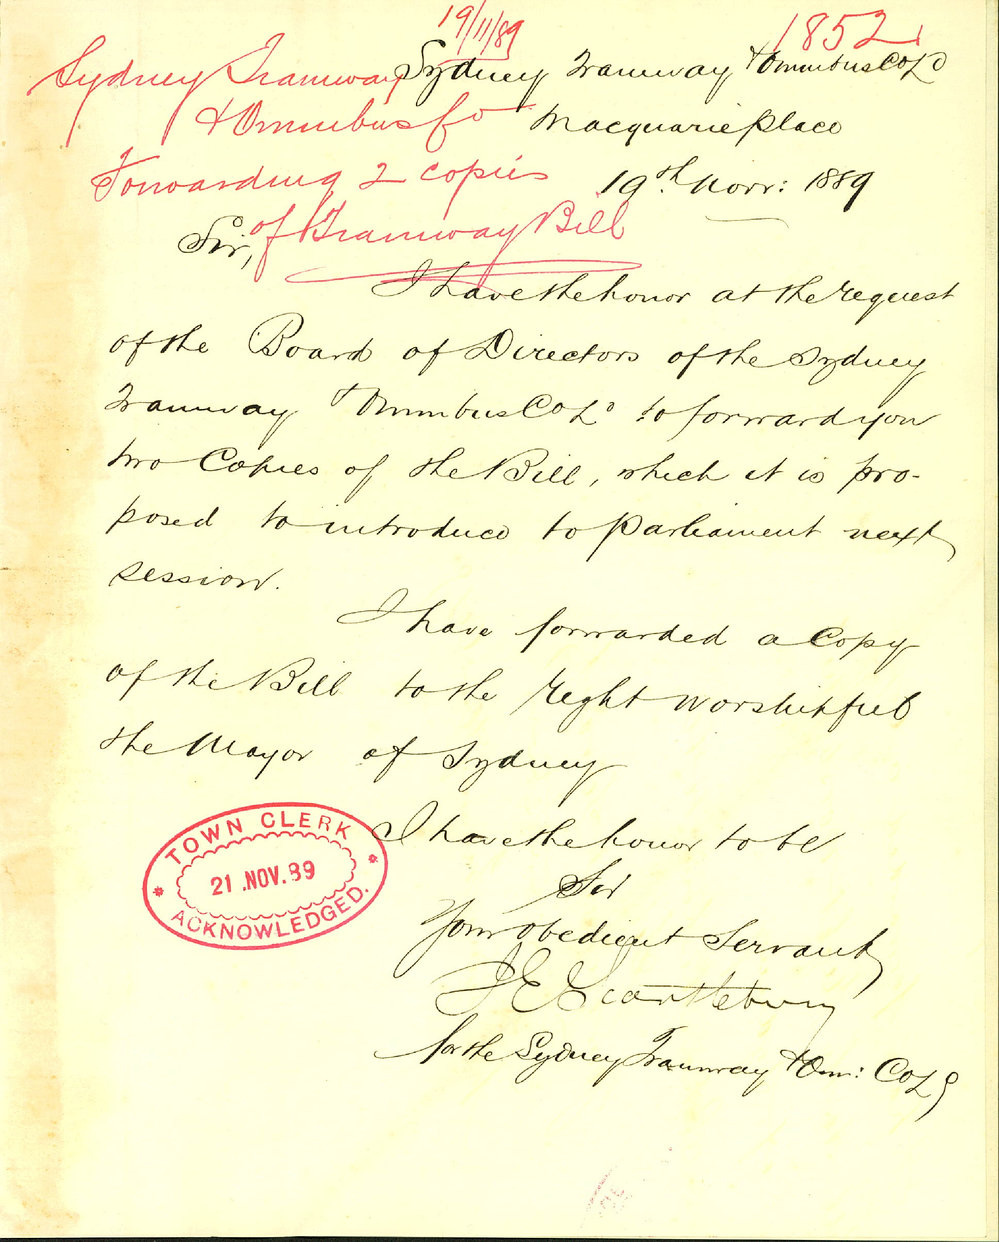 19/11/89
1852
Sydney Tramway
& Omnibus Co
Forwarding 2 copies
of Tramway Bill
Sydney Tramway & Omnibus Co Ld
Macquarie Place
19th Novr: 1889
Sir,
I have the honor at the request
of the Board of Directors of the Sydney
Tramway & Omnibus Co Ld to forward you
two Copies of the Bill, which it is pro-
posed to introduce to Parliament next
session.
I have forwarded a Copy
of the Bill to the right worshipful
the Mayor of Sydney
I have the honor to be
Sir
Your obedient Servant
for the Sydney Tramway & Om: Co Ld
TOWN CLERK
21 .NOV.89
ACKNOWLEDGED.